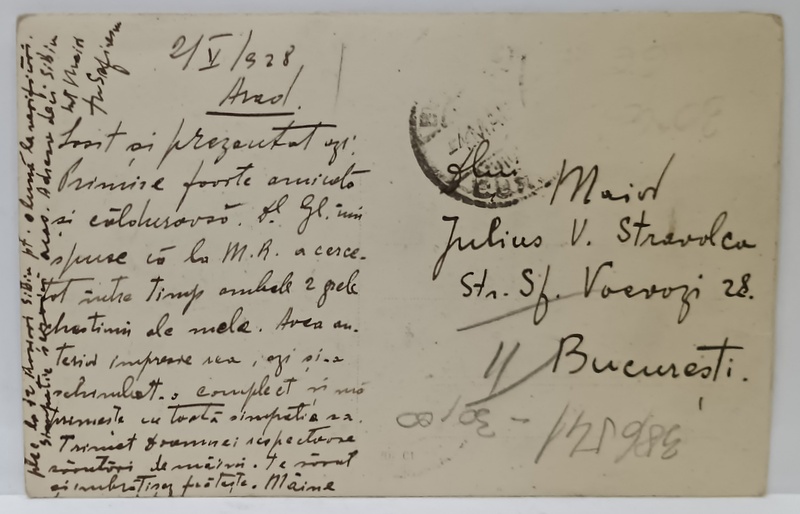 2/V/928
Arad.
Sosit și prezentat azi.
Primire foarte amicală
și călduroasă. Dl. Gl. îmi
spuse că la M.R. a cerce-
tat între timp ambele 2 grele
chestiuni ale mele. Avea an-
terior impresie rea, azi și-a
schimbat-o complect și mă
primește cu toată simpatia sa.
Trimet Doamnei respectoase
sărutări de mâini. Te sărut
și îmbrățișez frățește. Mâine
plec la 12 Sibiu pt. o lună
simpatie Arad. Adresa deci Sibiu
Maior
Dlui Maior
Julius V. Stravolca
Str. Sf. Voevozi 28.
II București.
386121 - 30/00